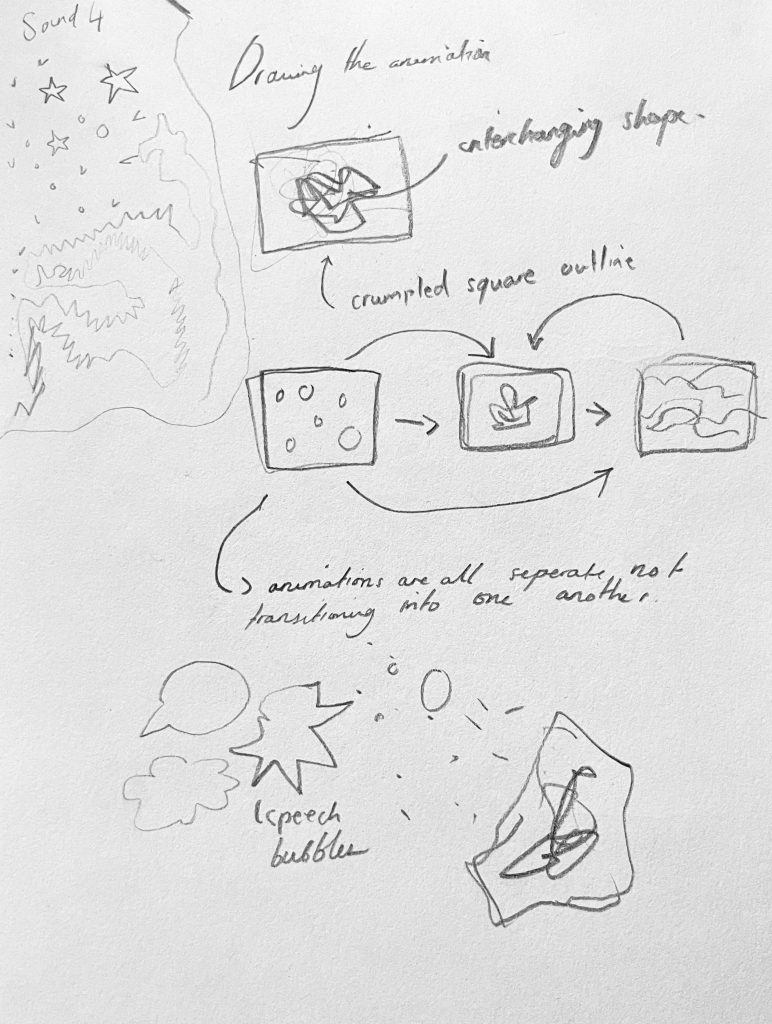 Sound 4
Drawing the animation
interchanging shape.
crumpled square outline
animations are all seperate, not
transitioning into one another.
speech
bubbles